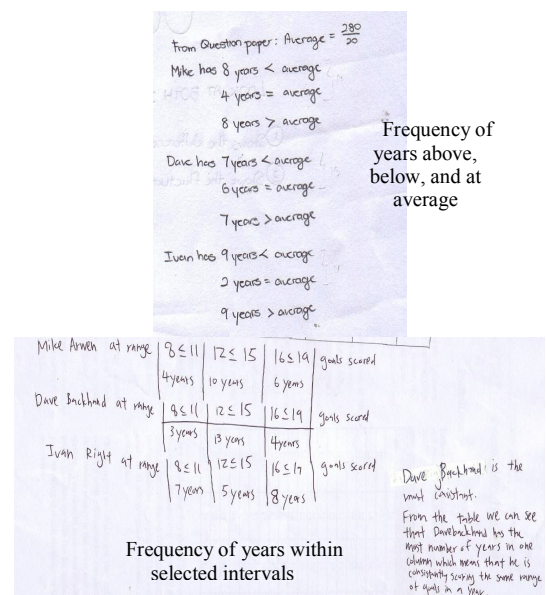 From Question paper: Average = 280/20
Mike has 8 years < average
4 years = average
8 years > average
Dave has 7 years < average
6 years = average
7 years > average
Ivan has 9 years < average
2 years = average
9 years > average
Frequency of
years above,
below, and at
average
Mike Arwen at range | 8 ≤ 11 | 12 ≤ 15 | 16 ≤ 19 | goals scored
4 years | 10 years | 6 years
Dave Backhand at range | 8 ≤ 11 | 12 ≤ 15 | 16 ≤ 19 | goals scored
3 years | 13 years | 4 years
Ivan Right at range | 8 ≤ 11 | 12 ≤ 15 | 16 ≤ 19 | goals scored
7 years | 5 years | 8 years
Dave Backhand is the
most consistant.
From the table we can see
that Davebackhand has the
most number of years in one
column which means that he is
consistantly scoring the same range
of goals in a year.
Frequency of years within
selected intervals